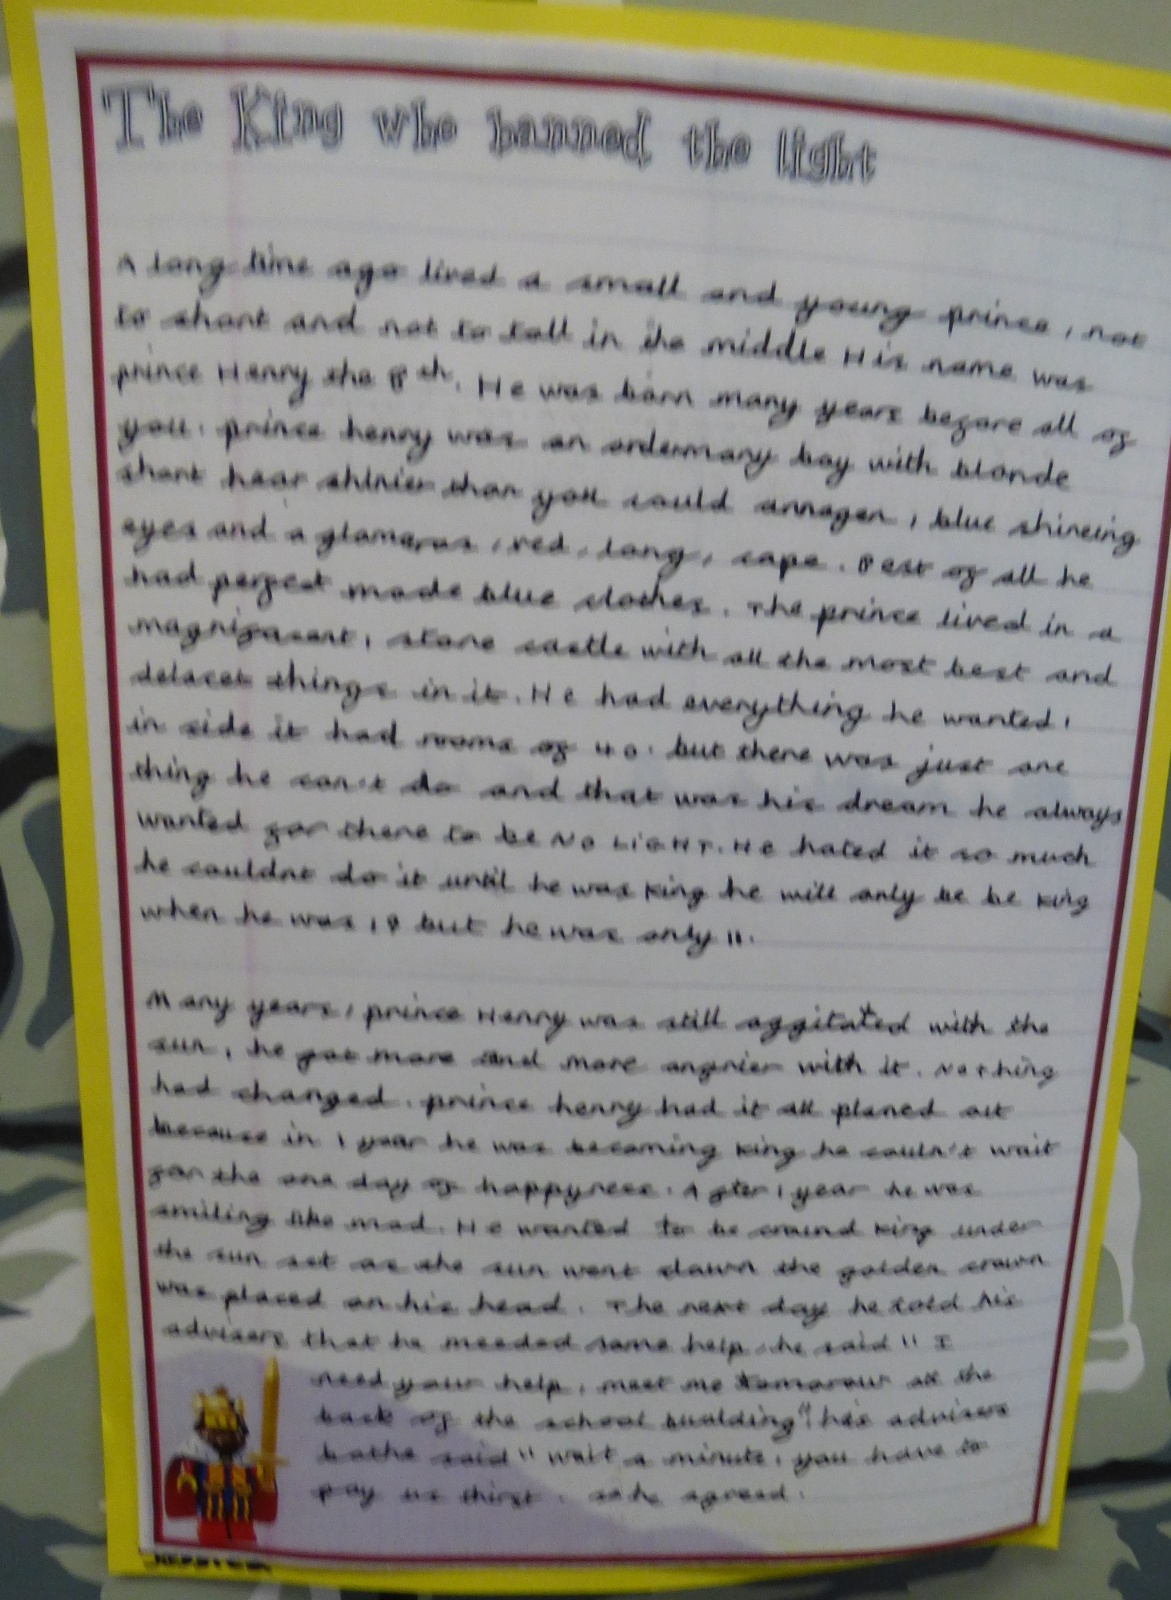 The King who banned the light
A long time ago lived a small and young prince, not
to short and not to tall in the middle His name was
prince Henry the 8th. He was born many years before all of
you. prince henry was an ordermary boy with blonde
short hear shinier than you could annagen, blue shineing
eyes and a glamerus, red, long, cape. Best of all he
had perfect made blue clothes. The prince lived in a
magnifasent, stone castle with all the most best and
delacet things in it. He had everything he wanted,
in side it had rooms of 40. but there was just one
thing he can't do and that was his dream he always
wanted for there to be NO LIGHT. He hated it so much
he couldnt do it until he was King he will only be be King
when he was 18 but he was only 11.
Many years, prince Henry was still aggitated with the
sun, he got more and more angrier with it. Nothing
had changed. prince henry had it all planed out
because in 1 year he was becoming King he couln't wait
for the one day of happyness. After 1 year he was
smiling like mad. He wanted to be cround King under
the sun set as the sun went dawn the golden crown
was placed on his head. The next day he told his
advisers that he meeded some help, he said " I
need your help, meet me tomorow at the
back of the school building" his advisers
bothe said " wait a minute, you have to
pay us thirst. so he agreed.